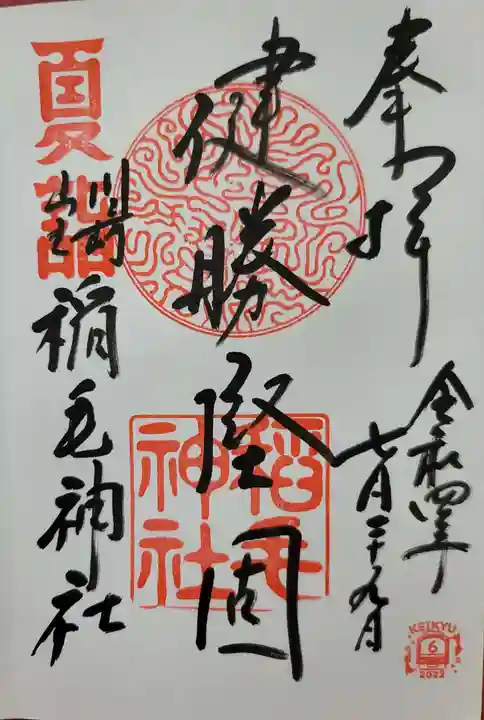 奉拝
令和四年
七月二十九日
健勝堅固
稲毛神社
夏詣
稲毛
神社
KEIKYU
6
2022